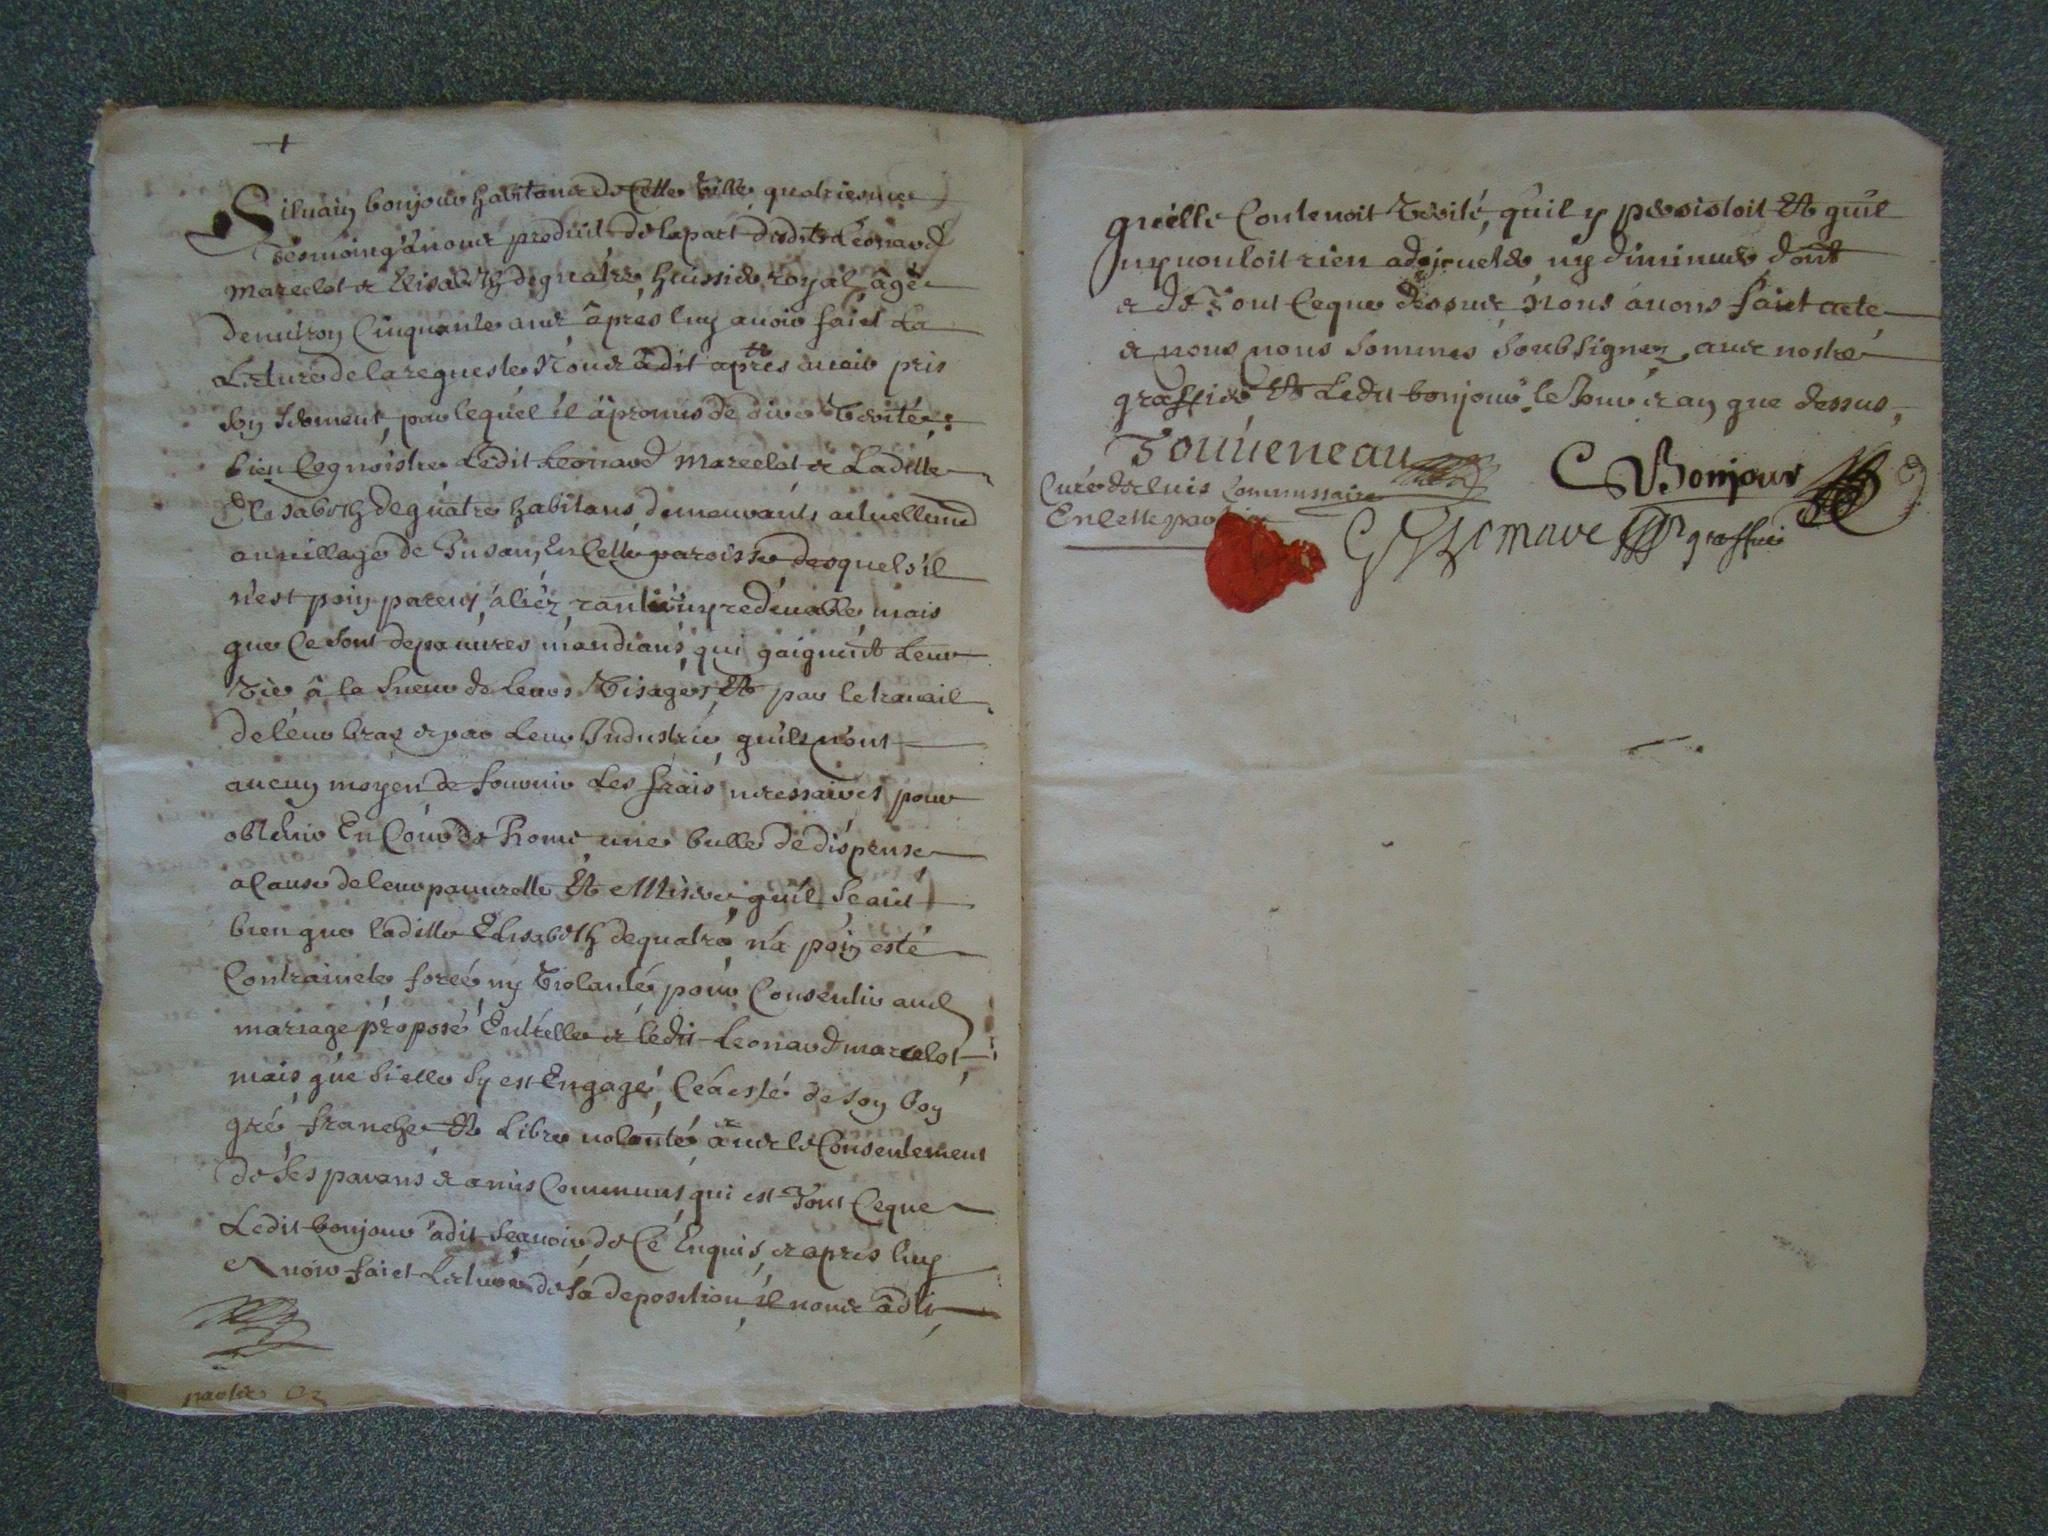 +
Siluain bonjour habitant de Cette Ville quatriesme
Tesmoing a nous produit de la part desdits Leonard
Marcelot et Elisabeth dequatre, huissier royal, âgé
denuiron Cinquante ans âpres luy auoir faict la
Lecture de la requeste Nous â dit apres auoir pris
son serment, par lequel il â promis de dire Verité,
bien Cognoistre Ledit Leonard Marcelot et Laditte
Elisabeth dequatre habitans, demeurants actuellement
au uillage de Pusan, En Cette paroisse desquels il
n'est poin parent, aliéz, ny redeuable, mais
que Ce sont depauures mandians, qui gaignent Leur
Vie â la Sueur de leurs Visages, Et par le trauail
de leur bras et par Leur Industrie, quils n'ont
aucun moyen de fournir Les frais necessaires pour
obtenir En Cour de Rome une bulle de dispense
a Cause de leur pauurette Et Misere, qu'il sçait
bien que laditte Elisabeth dequatre, n'a poin esté
Contraincte forcé ny Violanté pour Consentir aud
mariage proposé Entr'elle et ledit Leonard marcelot,
mais que si elle sy est Engagé, Ce a esté de son bon
gré, franche Et Libre uolonté, auec le Consentement
de Ses parans et amis Communs, qui est Tout Ceque
Ledit bonjour a dit sçauoir de Ce Enquis, et apres luy
Auoir faict Lecture de sa deposition, il nous â dit
qu'elle Contenoit Verité, qu'il y persistoit Et qu'il
ny uouloit rien adjouter ny diminuer dont
et de Tout Ceque dessus, Nous auons faict acte
et nous nous sommes soubsignez auec nostre
greffier Et Ledit bonjour le Jour et an que dessus,
Touueneau
C Bonjour
Curé de Cluis Commissaire
En Cette partie
greffier